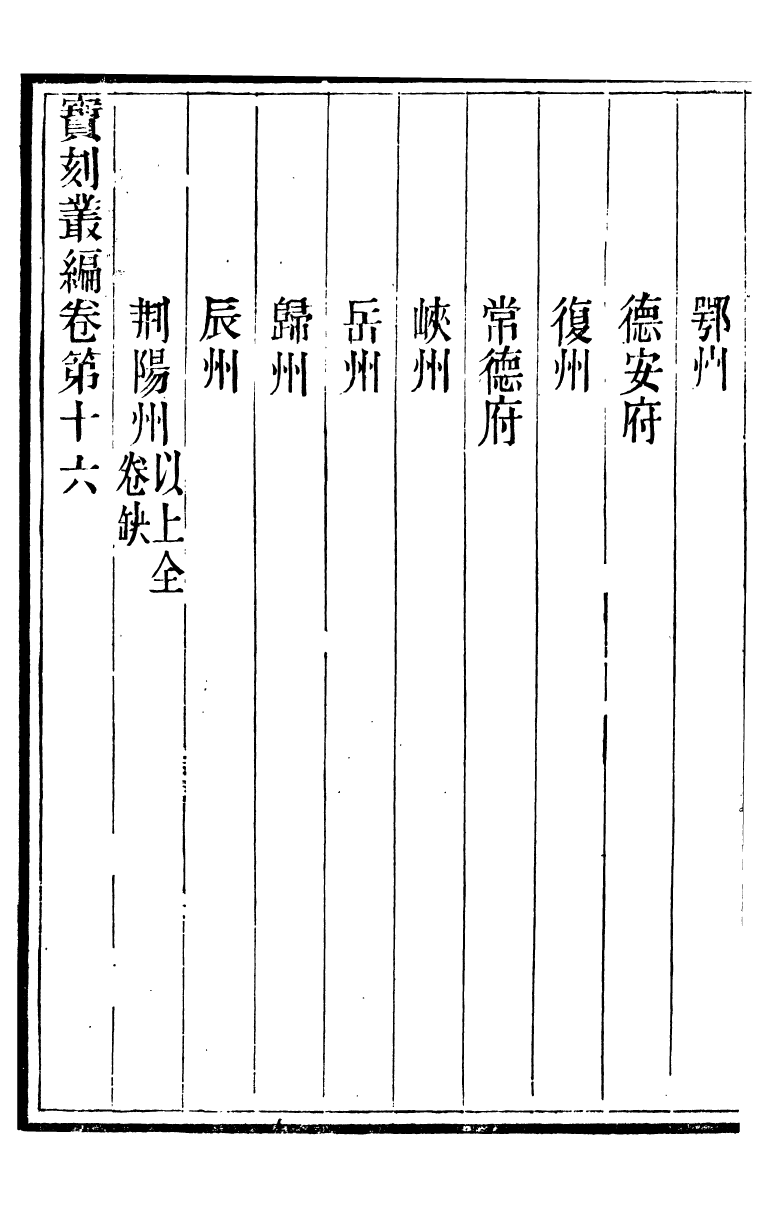 鄂州
德安府
復州
常德府
峽州
岳州
歸州
辰州
荆陽州以上全卷缺
寶刻叢編卷第十六